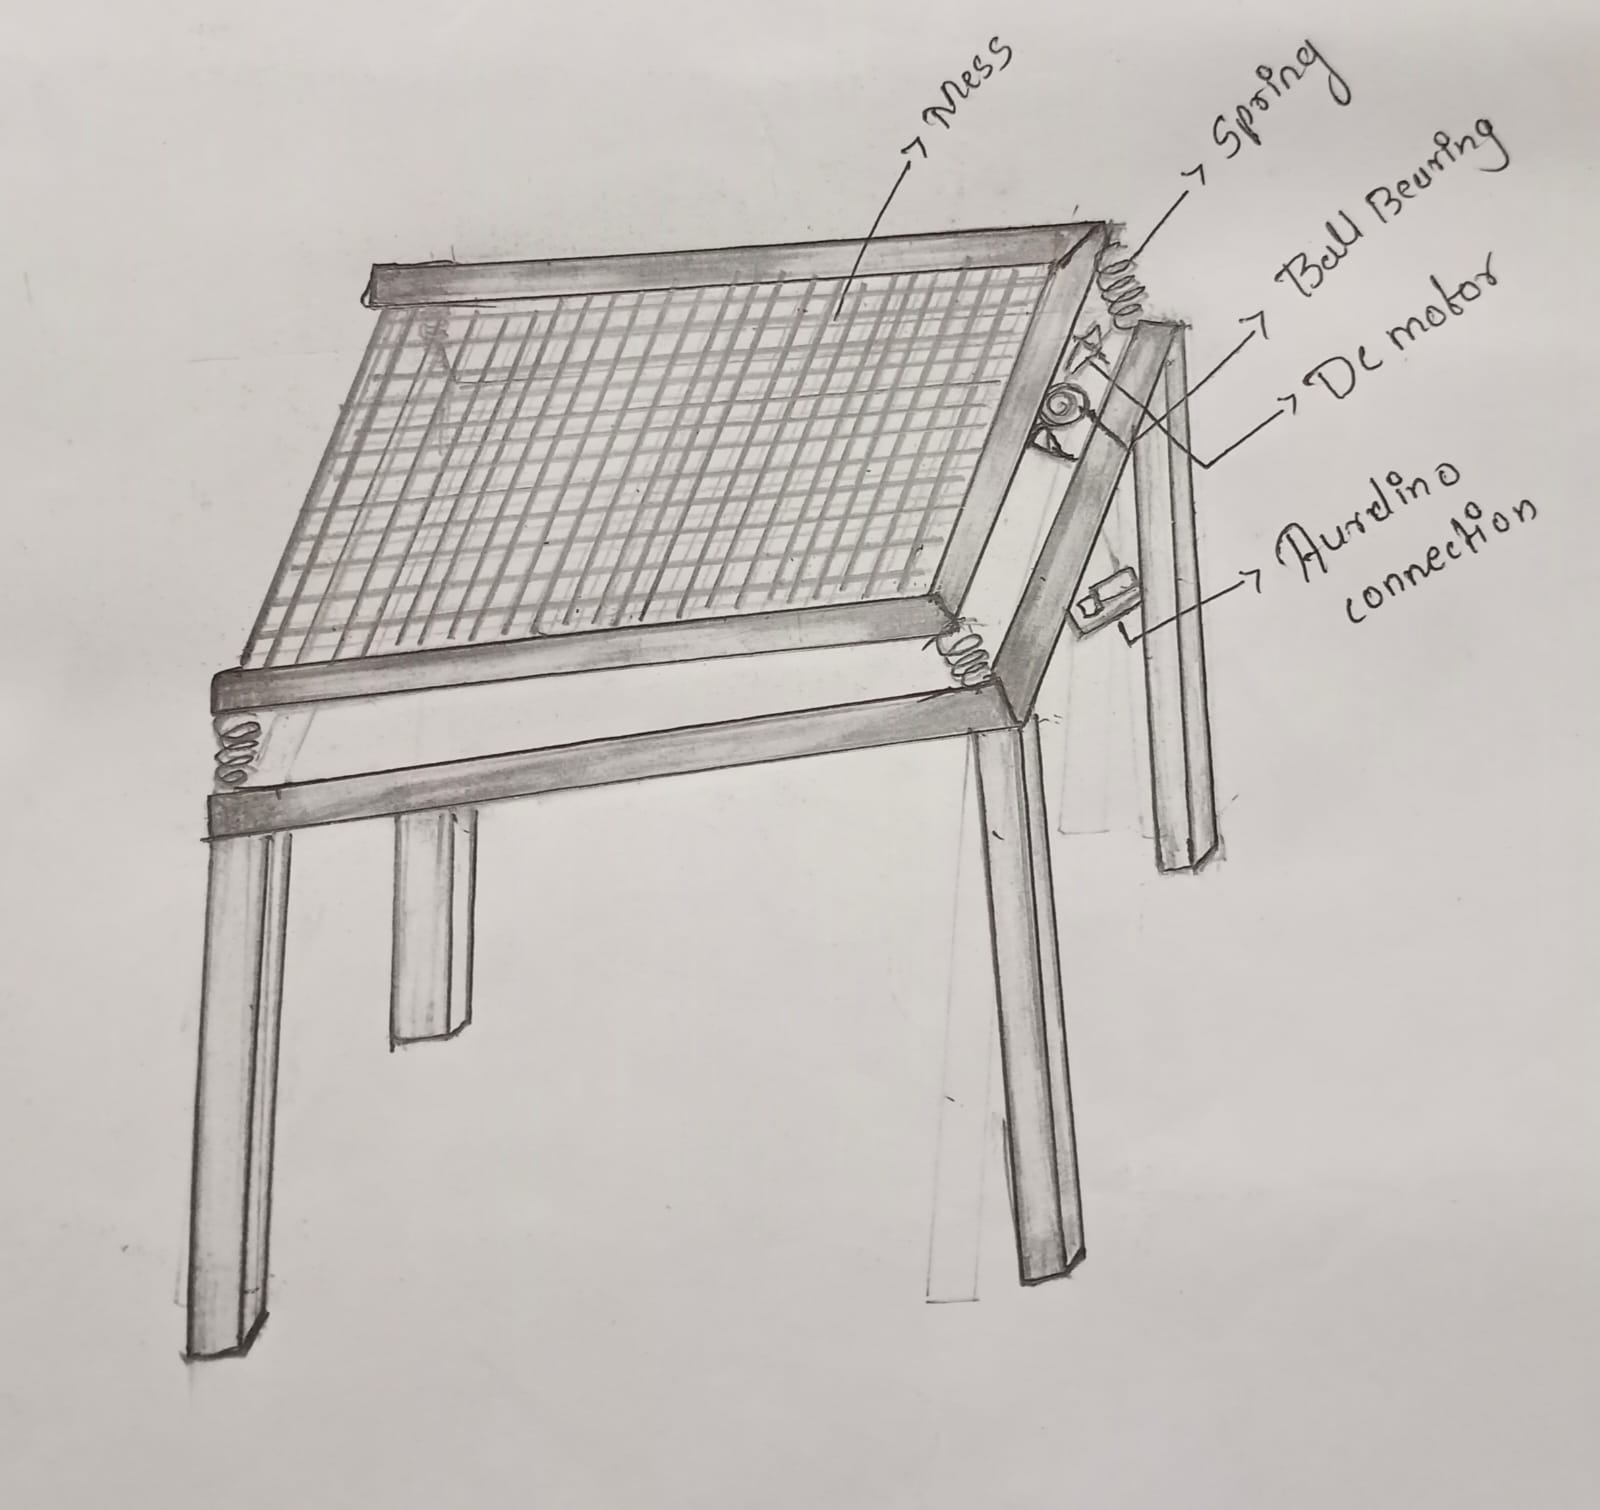 Mess
Spring
Ball Bearing
Dc motor
Aurdino
connection